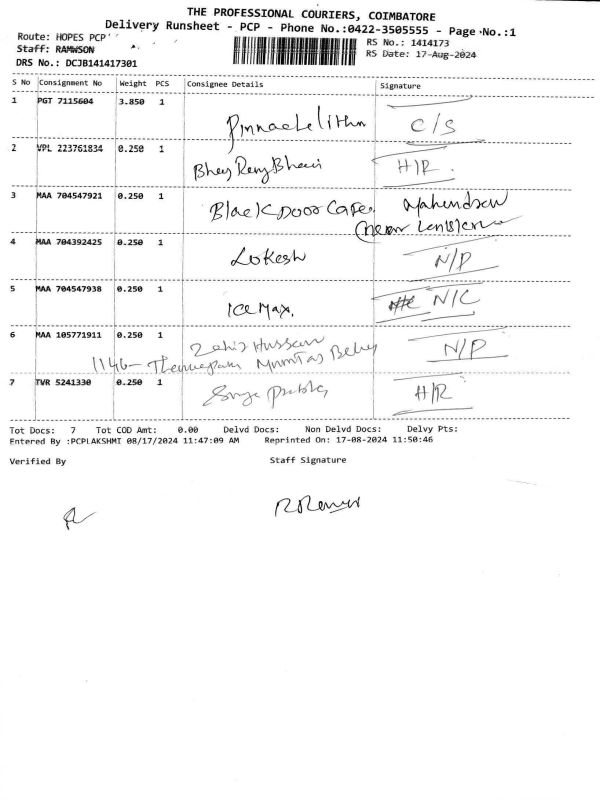 THE PROFESSIONAL COURIERS, COIMBATORE
Delivery Runsheet - PCP - Phone No.:0422-3505555 - Page No.:1
Route: HOPES PCP
RS No.: 1414173
Staff: RAMWSON
RS Date: 17-Aug-2024
DRS No.: DCJB141417301
S No Consignment No Weight PCS Consignee Details Signature
1 PGT 7115604 3.850 1
C/S
2 VPL 223761834 0.250 1
H/R.
3 MAA 704547921 0.250 1
Black Door Cafe. Mahendran
4 MAA 704392425 0.250 1
Lokesh N/P
5 MAA 704547938 0.250 1
Ice Max. N/C
6 MAA 105771911 0.250 1
Hussain N/P
1146- Mumtaz
7 TVR 5241330 0.250 1
H/R
Tot Docs: 7 Tot COD Amt: 0.00 Delvd Docs: Non Delvd Docs: Delvy Pts:
Entered By :PCPLAKSHMI 08/17/2024 11:47:09 AM Reprinted On: 17-08-2024 11:50:46
Verified By Staff Signature